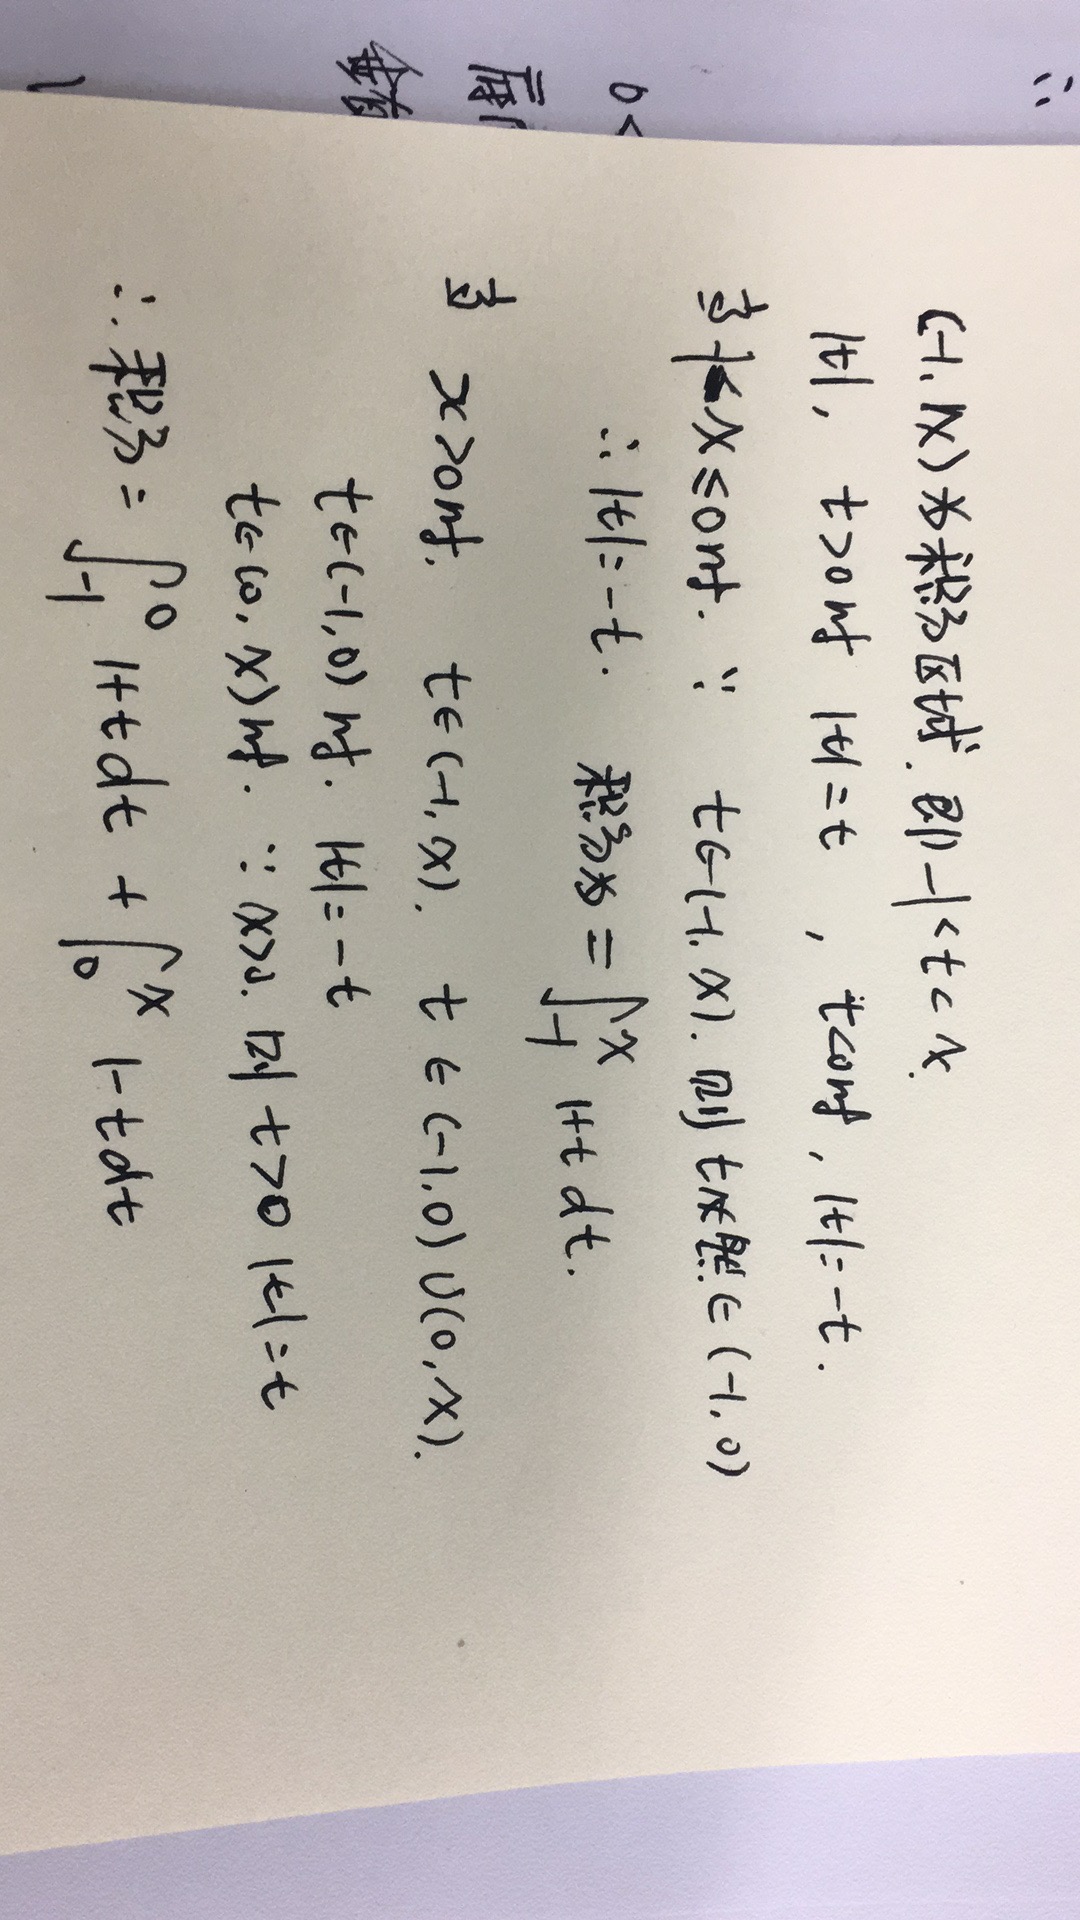 ∴
0<
(-1, x)为积分区域. 即 -1<t<x.
|t|, t>0时 |t|=t , t<0时, |t|=-t.
当-1<x≤0时. ∵ t∈(-1, x). 则t必然∈(-1,0)
∴ |t|=-t. 积分为=∫₋₁ˣ 1+t dt.
当 x>0时. t∈(-1, x). t∈(-1,0)∪(0,x).
t∈(-1,0)时. |t|=-t
t∈(0, x)时. ∵ x>0. 则 t>0 |t|=t
∴ 积分=∫₋₁⁰ 1+t dt + ∫₀ˣ 1-t dt